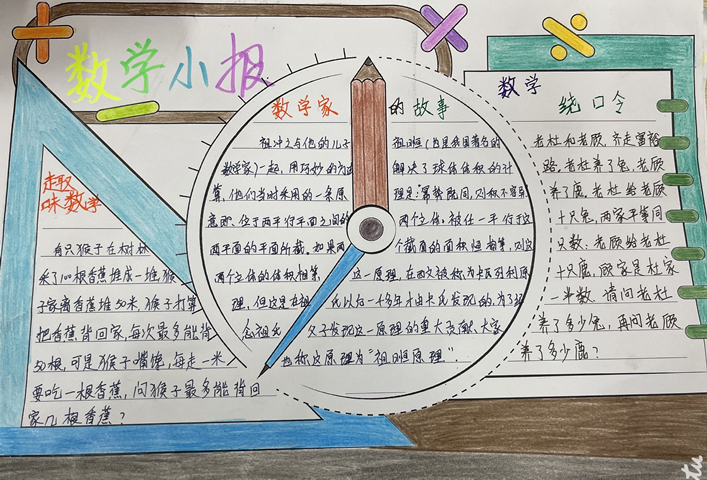 数学小报
趣
味数学
有只猴子在树林
采了100根香蕉堆成一堆,猴
子家离香蕉堆50米,猴子打算
把香蕉背回家,每次最多能背
50根,可是猴子嘴馋,每走一米
要吃一根香蕉,问猴子最多能背回
家几根香蕉?
数学家的故事
祖冲之与他的儿子祖暅(也是我国著名的
数学家)一起,用巧妙的方法解决了球体体积的计
算,他们当时采用的一条原理是:幂势既同,则积不容异
意即,位于两平行平面之间的两个立体,被任一平行于这
两平面的平面所截,如果两个截面的面积恒相等,则这
两个立体的体积相等,这一原理,在西文被称为卡瓦列利原
理,但这是在祖氏以后一千多年才由卡氏发现的,为了纪
念祖氏父子发现这一原理的重大贡献,大家
也称这原理为“祖暅原理”.
数学
绕口令
老杜和老顾,齐走富裕
路,老杜养了兔,老顾
养了鹿,老杜给老顾
十只兔,两家平等同
只数,老顾给老杜
十只鹿,顾家是杜家
一半数,请问老杜
养了多少兔,再问老顾
养了多少鹿?
tu